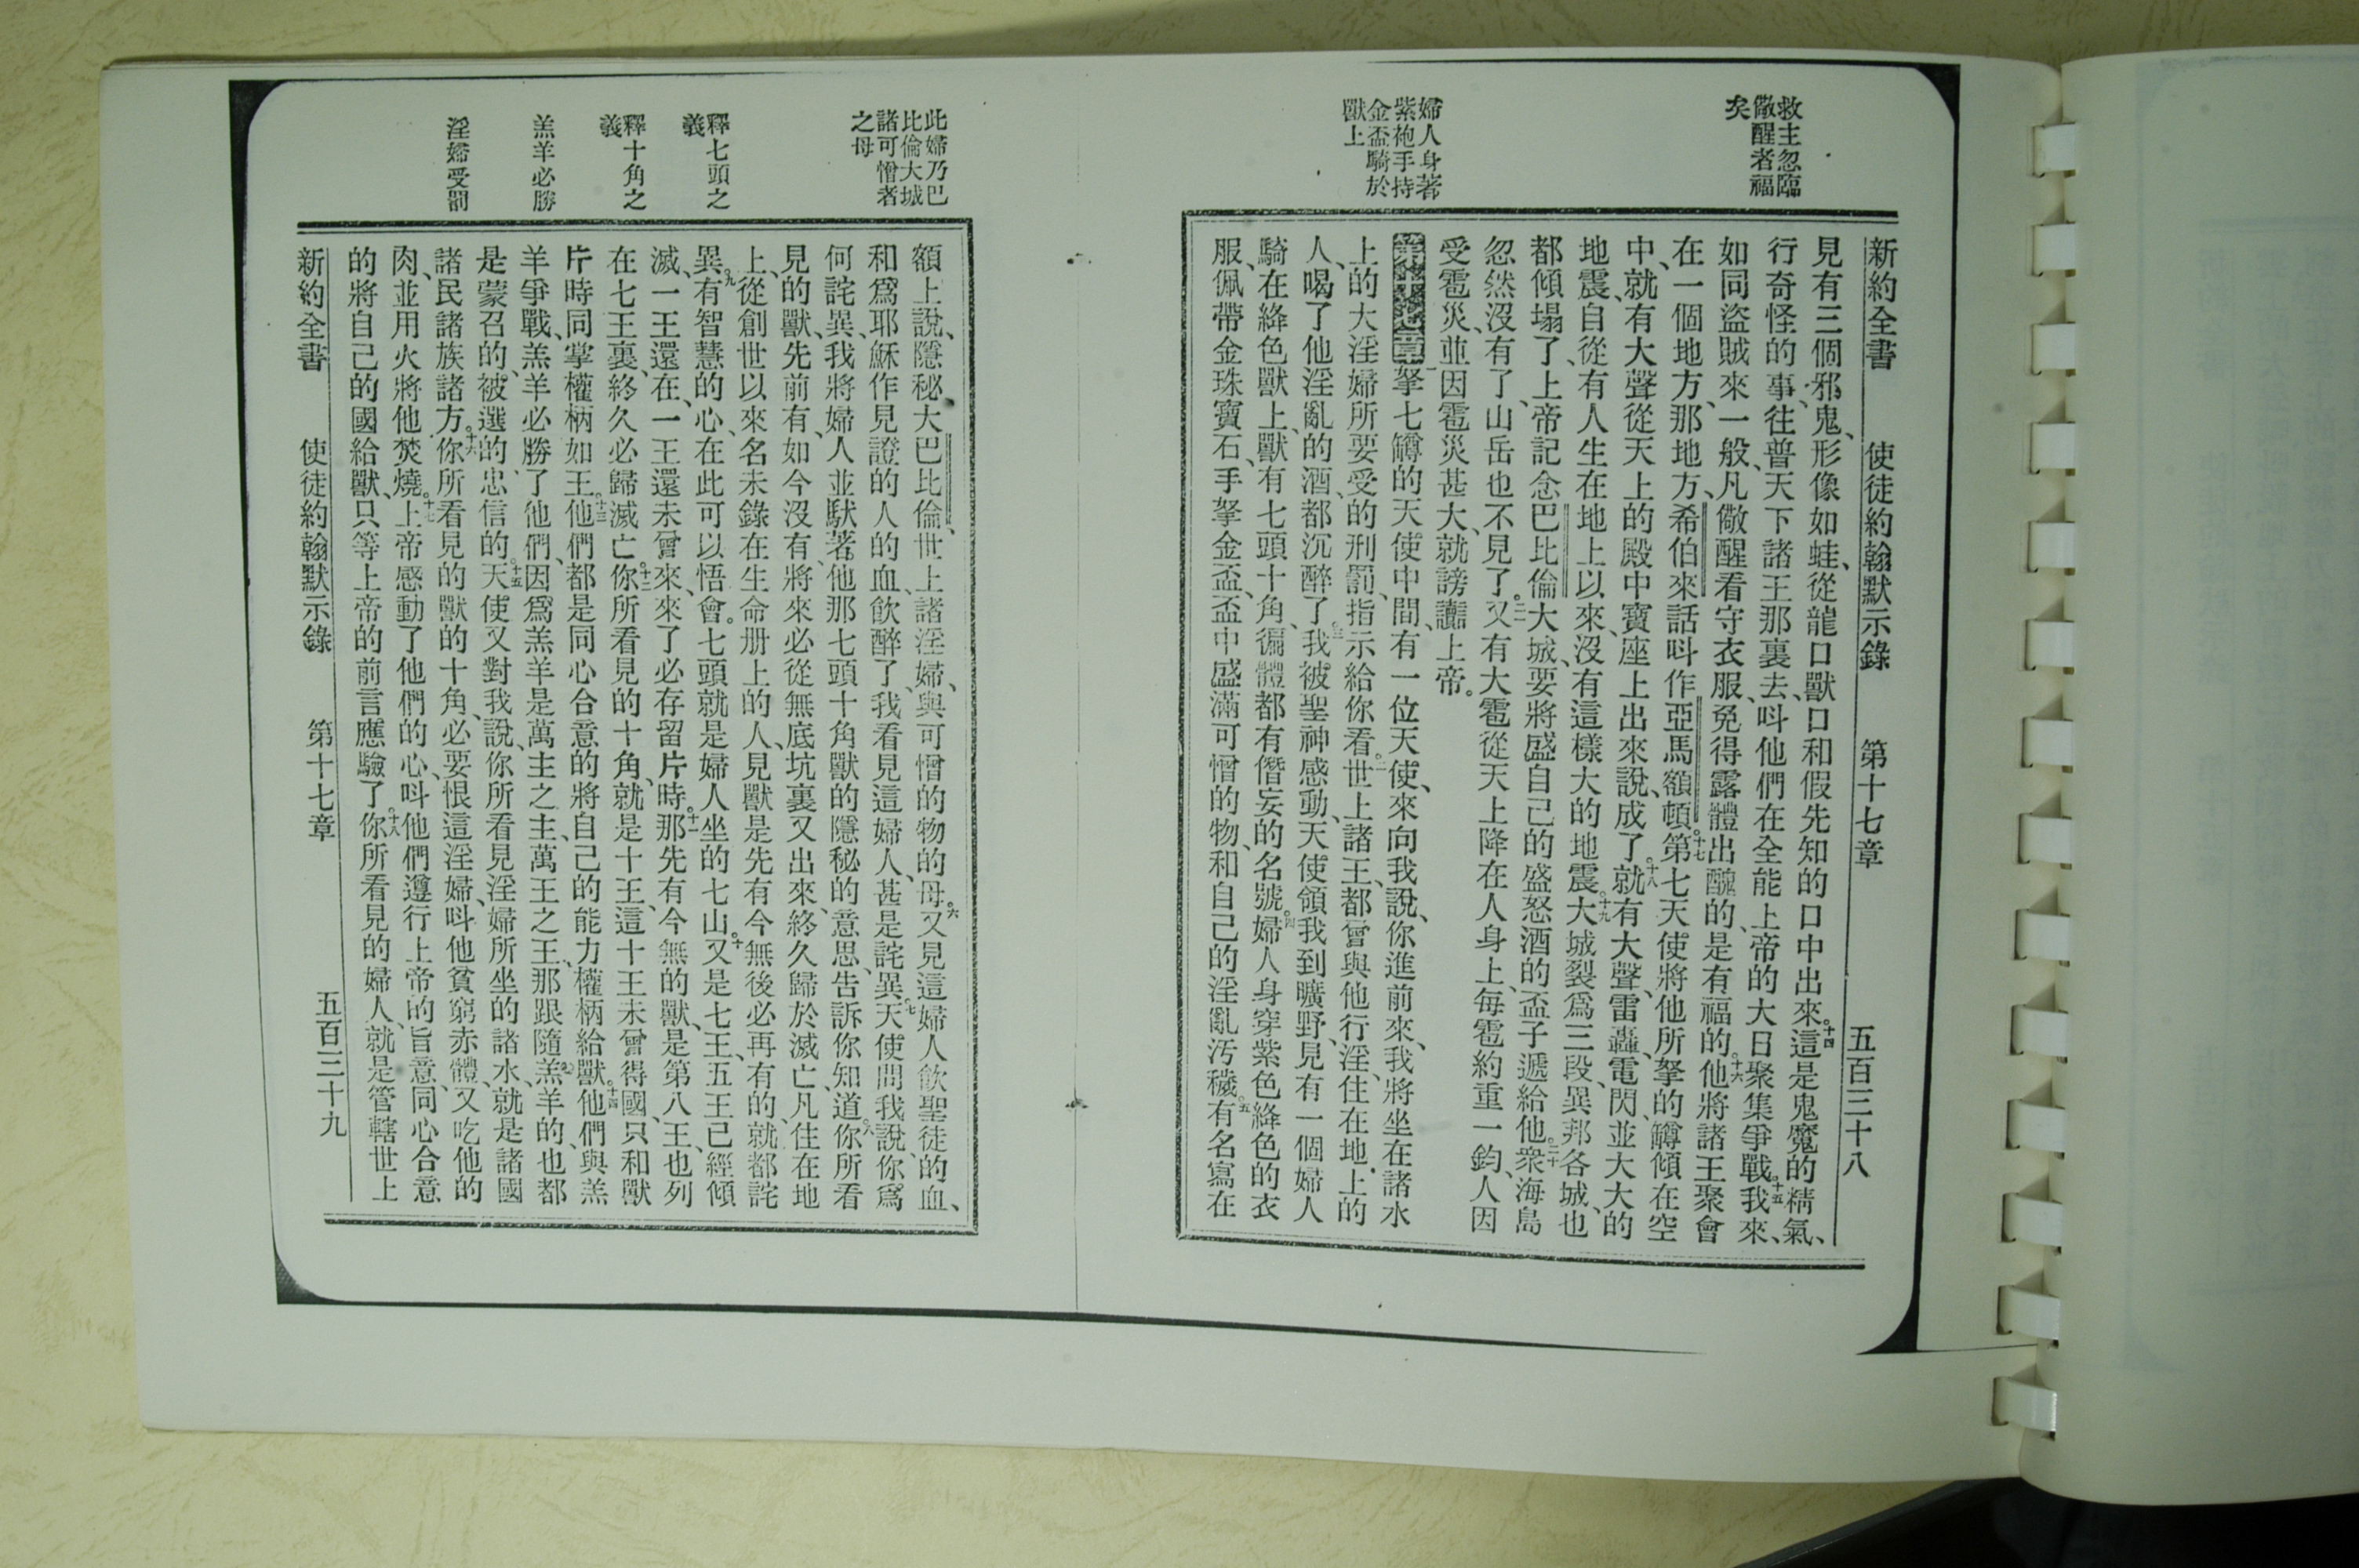 救主忽臨
儆醒者福
矣
婦人身著
紫袍手持
金盃騎於
獸上
新約全書 使徒約翰默示錄 第十七章 五百三十八
見有三個邪鬼、形像如蛙、從龍口獸口和假先知的口中出來。十四這是鬼魔的精氣、
行奇怪的事、往普天下諸王那裏去、呌他們在全能上帝的大日聚集爭戰。十五我來、
如同盜賊來一般、凡儆醒看守衣服、免得露體出醜的、是有福的。十六他將諸王聚會
在一個地方、那地方、希伯來話呌作亞馬額頓。十七第七天使將他所拏的罇傾在空
中、就有大聲從天上的殿中寶座上出來說、成了。十八就有大聲、雷轟、電閃、並大大的
地震、自從有人生在地上以來、沒有這樣大的地震。十九大城裂爲三段、異邦各城、也
都傾塌了、上帝記念巴比倫大城、要將盛自己的盛怒酒的盃子遞給他。二十衆海島
忽然沒有了、山岳也不見了。二一又有大雹從天上降在人身上、每雹約重一鈞、人因
受雹災、並因雹災甚大、就謗讟上帝。
第十七章一拏七罇的天使中間、有一位天使、來向我說、你進前來、我將坐在諸水
上的大淫婦所要受的刑罰、指示給你看。二世上諸王、都曾與他行淫、住在地上的
人、喝了他淫亂的酒、都沉醉了。三我被聖神感動、天使領我到曠野、見有一個婦人
騎在絳色獸上、獸有七頭十角、徧體都有僭妄的名號。四婦人身穿紫色絳色的衣
服、佩帶金珠寶石、手拏金盃、盃中盛滿可憎的物、和自己的淫亂汚穢。五有名寫在
此婦乃巴
比倫大城
諸可憎者
之母
釋七頭之
義
釋十角之
義
羔羊必勝
淫婦受罰
額上說、隱秘、大巴比倫、世上諸淫婦、與可憎的物的母。六又見這婦人飲聖徒的血、
和爲耶穌作見證的人的血、飲醉了、我看見這婦人、甚是詫異。七天使問我說、你爲
何詫異、我將婦人並馱著他那七頭十角獸的隱秘的意思、告訴你知道。八你所看
見的獸、先前有、如今沒有、將來必從無底坑裏又出來、終久歸於滅亡、凡住在地
上、從創世以來、名未錄在生命册上的人、見獸是先有今無後必再有的、就都詫
異。九有智慧的心、在此可以悟會。七頭就是婦人坐的七山。十又是七王、五王已經傾
滅、一王還在、一王還未曾來、來了必存留片時。十一那先有今無的獸、是第八王、也列
在七王裏、終久必歸滅亡。十二你所看見的十角、就是十王、這十王未曾得國、只和獸
片時同掌權柄如王。十三他們都是同心合意的將自己的能力權柄給獸。十四他們與羔
羊爭戰、羔羊必勝了他們、因爲羔羊是萬主之主、萬王之王、那跟隨羔羊的、也都
是蒙召的、被選的、忠信的。十五天使又對我說、你所看見淫婦所坐的諸水、就是諸國
諸民諸族諸方。十六你所看見的獸的十角、必要恨這淫婦、呌他貧窮赤體、又吃他的
肉、並用火將他焚燒。十七上帝感動了他們的心、呌他們遵行上帝的旨意、同心合意
的將自己的國給獸、只等上帝的前言應驗了。十八你所看見的婦人、就是管轄世上
新約全書 使徒約翰默示錄 第十七章 五百三十九